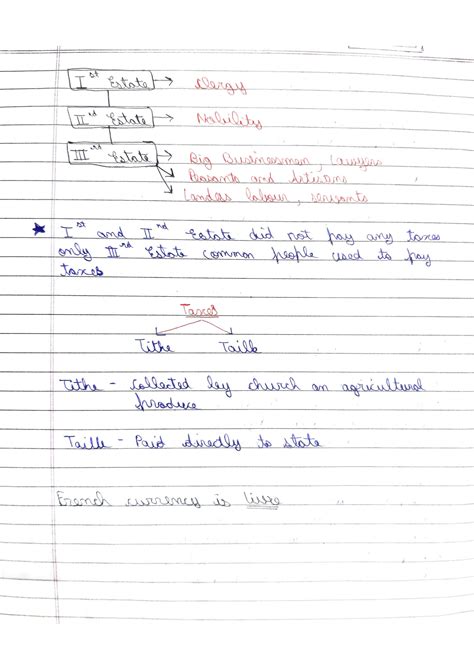 Ist Estate → Clergy
IInd Estate → Nobility
IIIrd Estate → Big Businessmen, Lawyers
Peasants and Artisians
Landless labour, servants
★ Ist and IInd Estate did not pay any taxes
only IIIrd Estate common people used to pay
taxes
Taxes
Tithe Taille
Tithe - Collected by church on agricultural
produce
Taille - Paid directly to state
French currency is livre